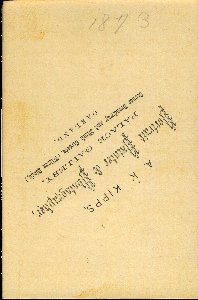 1873
A. K. KIPPS,
Portrait Painter & Photographer,
PALACE GALLERY,
OAKLAND.